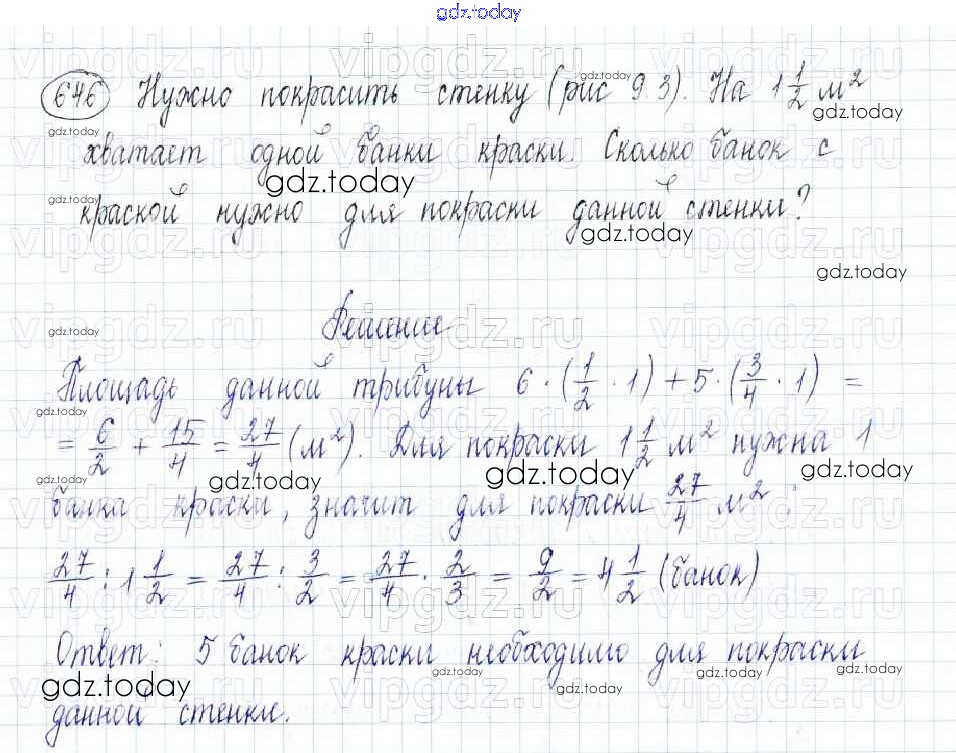 gdz.today
646 Нужно покрасить стенку (рис 9.3). На 1 1/2 м²
хватает одной банки краски. Сколько банок с
краской нужно для покраски данной стенки?
Решение
Площадь данной трибуны 6 · (1/2 · 1) + 5 · (3/4 · 1) =
= 6/2 + 15/4 = 27/4 (м²). Для покраски 1 1/2 м² нужна 1
банка краски, значит для покраски 27/4 м² :
27/4 : 1 1/2 = 27/4 : 3/2 = 27/4 · 2/3 = 9/2 = 4 1/2 (банок)
Ответ: 5 банок краски необходимо для покраски
данной стенки.